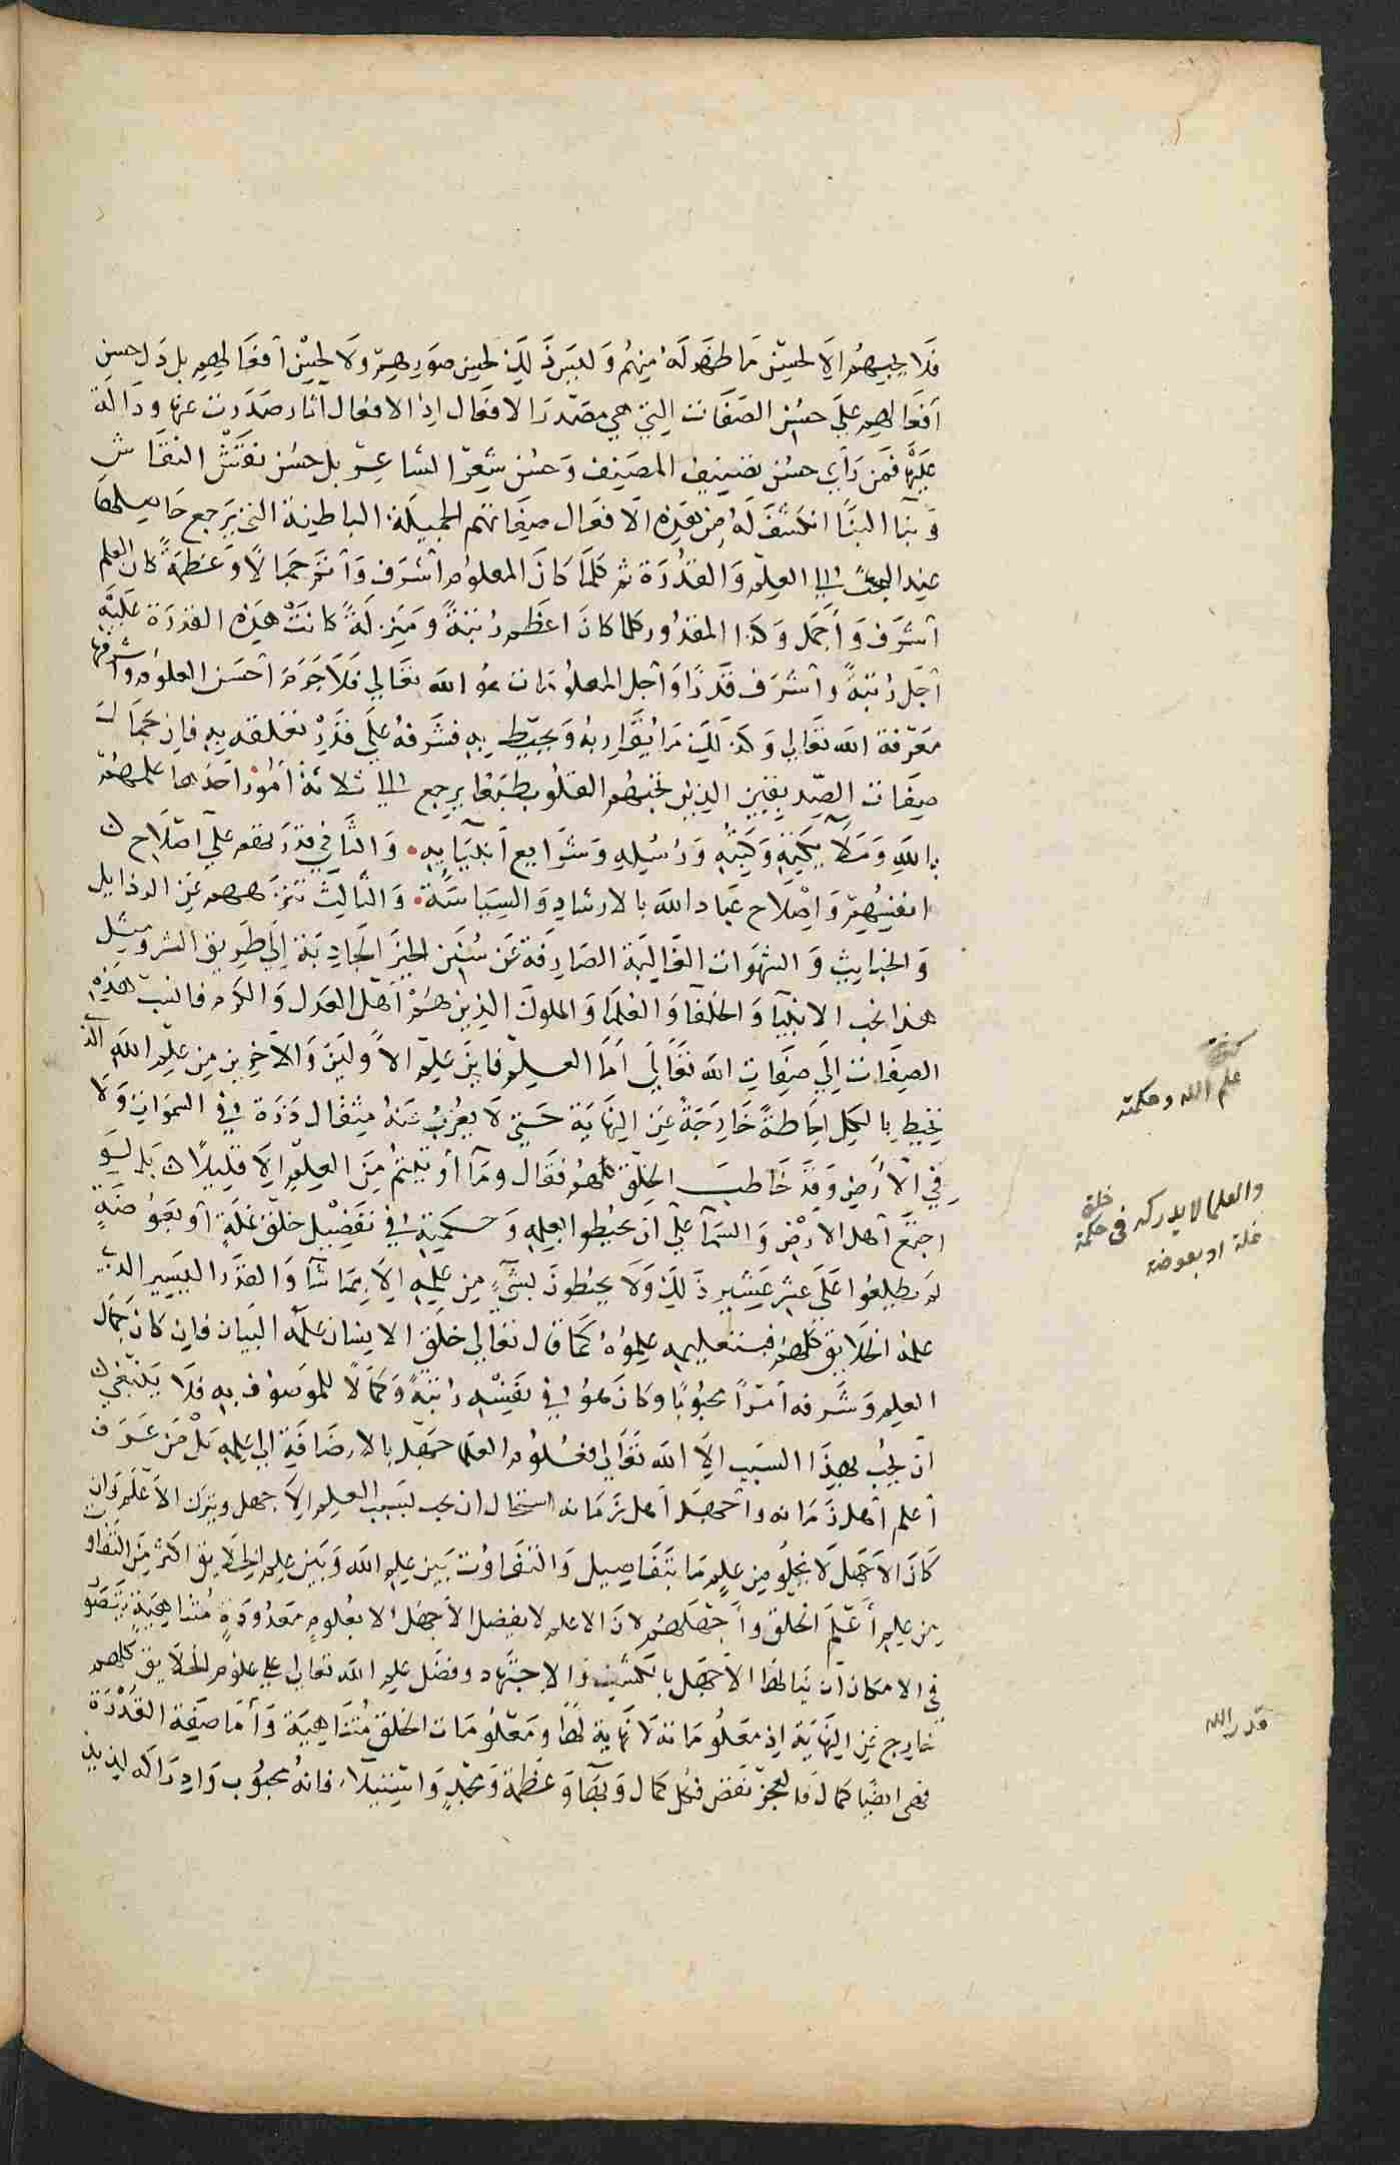 فلا يحبهم الا لحسن ما ظهر له منهم وليس ذلك لحسن صورهم ولا لحسن أفعالهم بل دل حسن
أفعالهم على حسن الصفات التي هي مصدر الافعال اذ الافعال آثار صدرت عنها ودالة
عليها فمن رأى حسن تصنيف المصنف وحسن شعر الشاعر بل حسن نقش النقاش
وبنا البنا انكشف له من هذه الافعال صفاتهم الجميلة الباطنة التي يرجع حاصلها
عند البحث الى العلم والقدرة ثم كلما كان المعلوم أشرف وأتم جمالا وعظمة كان العلم
أشرف وأجمل وكذا المقدور كلما كان اعظم رتبة ومنزلة كانت هذه القدرة عليه
أجل رتبة وأشرف قدرا وأجل المعلومات هو الله تعالى فلا جرم أحسن العلوم وأشرفها
معرفة الله تعالى وكذلك ما يقاربه ويحيط به فشرفه على قدر تعلقه به فاذ جمال
صفات الصديقين الذين تحبهم القلوب طبعا يرجع الى ثلاثة أمور أحدها علمهم
بالله وملايكته وكتبه ورسله وشرايع أنبيايه. والثاني قدرتهم على اصلاح
انفسهم واصلاح عباد الله بالارشاد والسياسة. والثالث تنزههم عن الرذايل
والخبايث والشهوات الغالبة الصارفة عن سنن الخير الجاذبة الى طريق الشر ومثل
هذا نحب الانبيا والخلفا والعلما والملوك الذين هم أهل العدل والكرم فانسب هذه
الصفات الى صفات الله تعالى أما العلم فاين علم الأولين والآخرين من علم الله الذ
يحيط بالكل احاطة خارجة عن النهاية حتى لا يعزب عنه مثقال ذرة في السموات ولا
في الأرض وقد خاطب الخلق كلهم فقال وما أوتيتم من العلم الا قليلا بل لو
اجتمع أهل الارض والسما على أن يحيطوا بعلمه وحكمته في تفضيل خلق نملة أو بعوضة
لم يطلعوا على عشر عشير ذلك ولا يحيطون بشيء من علمه الا بما شا والقدر اليسير الذي
علمه الخلايق كلهم فبتعليمه علموه كما قال تعالى خلق الانسان علمه البيان فان كان جمال
العلم وشرفه أمرا محبوبا وكان هو في نفسه رتبة وكمالا للموصوف به فلا ينبغي
أن يحب بهذا السبب الا الله تعالى فعلوم العلما جهل بالاضافة الى علمه بل من عرف
أعلم أهل زمانه وأجهل أهل زمانه استحال ان يحب بسبب العلم الاجهل ويترك الأعلم وان
كان الأجهل لا يخلو من علم ما بتفاصيل والتفاوت بين علم الله وبين علم الخلايق اكثر من التفاو
من علم أعلم الخلق وأجهلهم لان الاعلم لا يفضل الأجهل الا بعلوم معدودة متناهية يتصو
في الامكان أن ينالها الأجهل بالكسب والاجتهاد وفضل علم الله تعالى على علوم الخلايق كلهم
خارج عن النهاية اذ معلوماته لا نهاية لها ومعلومات الخلق متناهية وأما صفة القدرة
فهي ايضا كمال والعجز نقص فكل كمال وبها وعظمة ومجد واستيلاء فانه محبوب وادراكه لذيذ
علم الله وحكمته
والعلما لا يدركه فى حكمة خلق
نملة او بعوضة
قدر الله